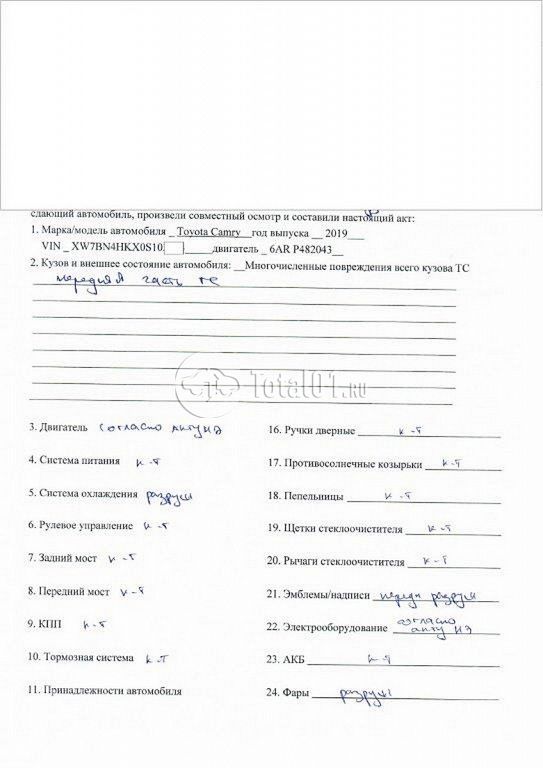 сдающий автомобиль, произвели совместный осмотр и составили настоящий акт:
1. Марка/модель автомобиля _ Toyota Camry__год выпуска __ 2019___
VIN _ XW7BN4HKX0S10 _____двигатель _ 6AR P482043__
2. Кузов и внешнее состояние автомобиля: __Многочисленные повреждения всего кузова ТС
передняя часть ТС
Total01.RU
3. Двигатель согласно акту ИЭ
4. Система питания к-т
5. Система охлаждения разруш
6. Рулевое управление к-т
7. Задний мост к-т
8. Передний мост к-т
9. КПП к-т
10. Тормозная система к-т
11. Принадлежности автомобиля
16. Ручки дверные к-т
17. Противосолнечные козырьки к-т
18. Пепельницы к-т
19. Щетки стеклоочистителя к-т
20. Рычаги стеклоочистителя к-т
21. Эмблемы/надписи передн разруш
22. Электрооборудование согласно акту ИЭ
23. АКБ к-т
24. Фары разруш